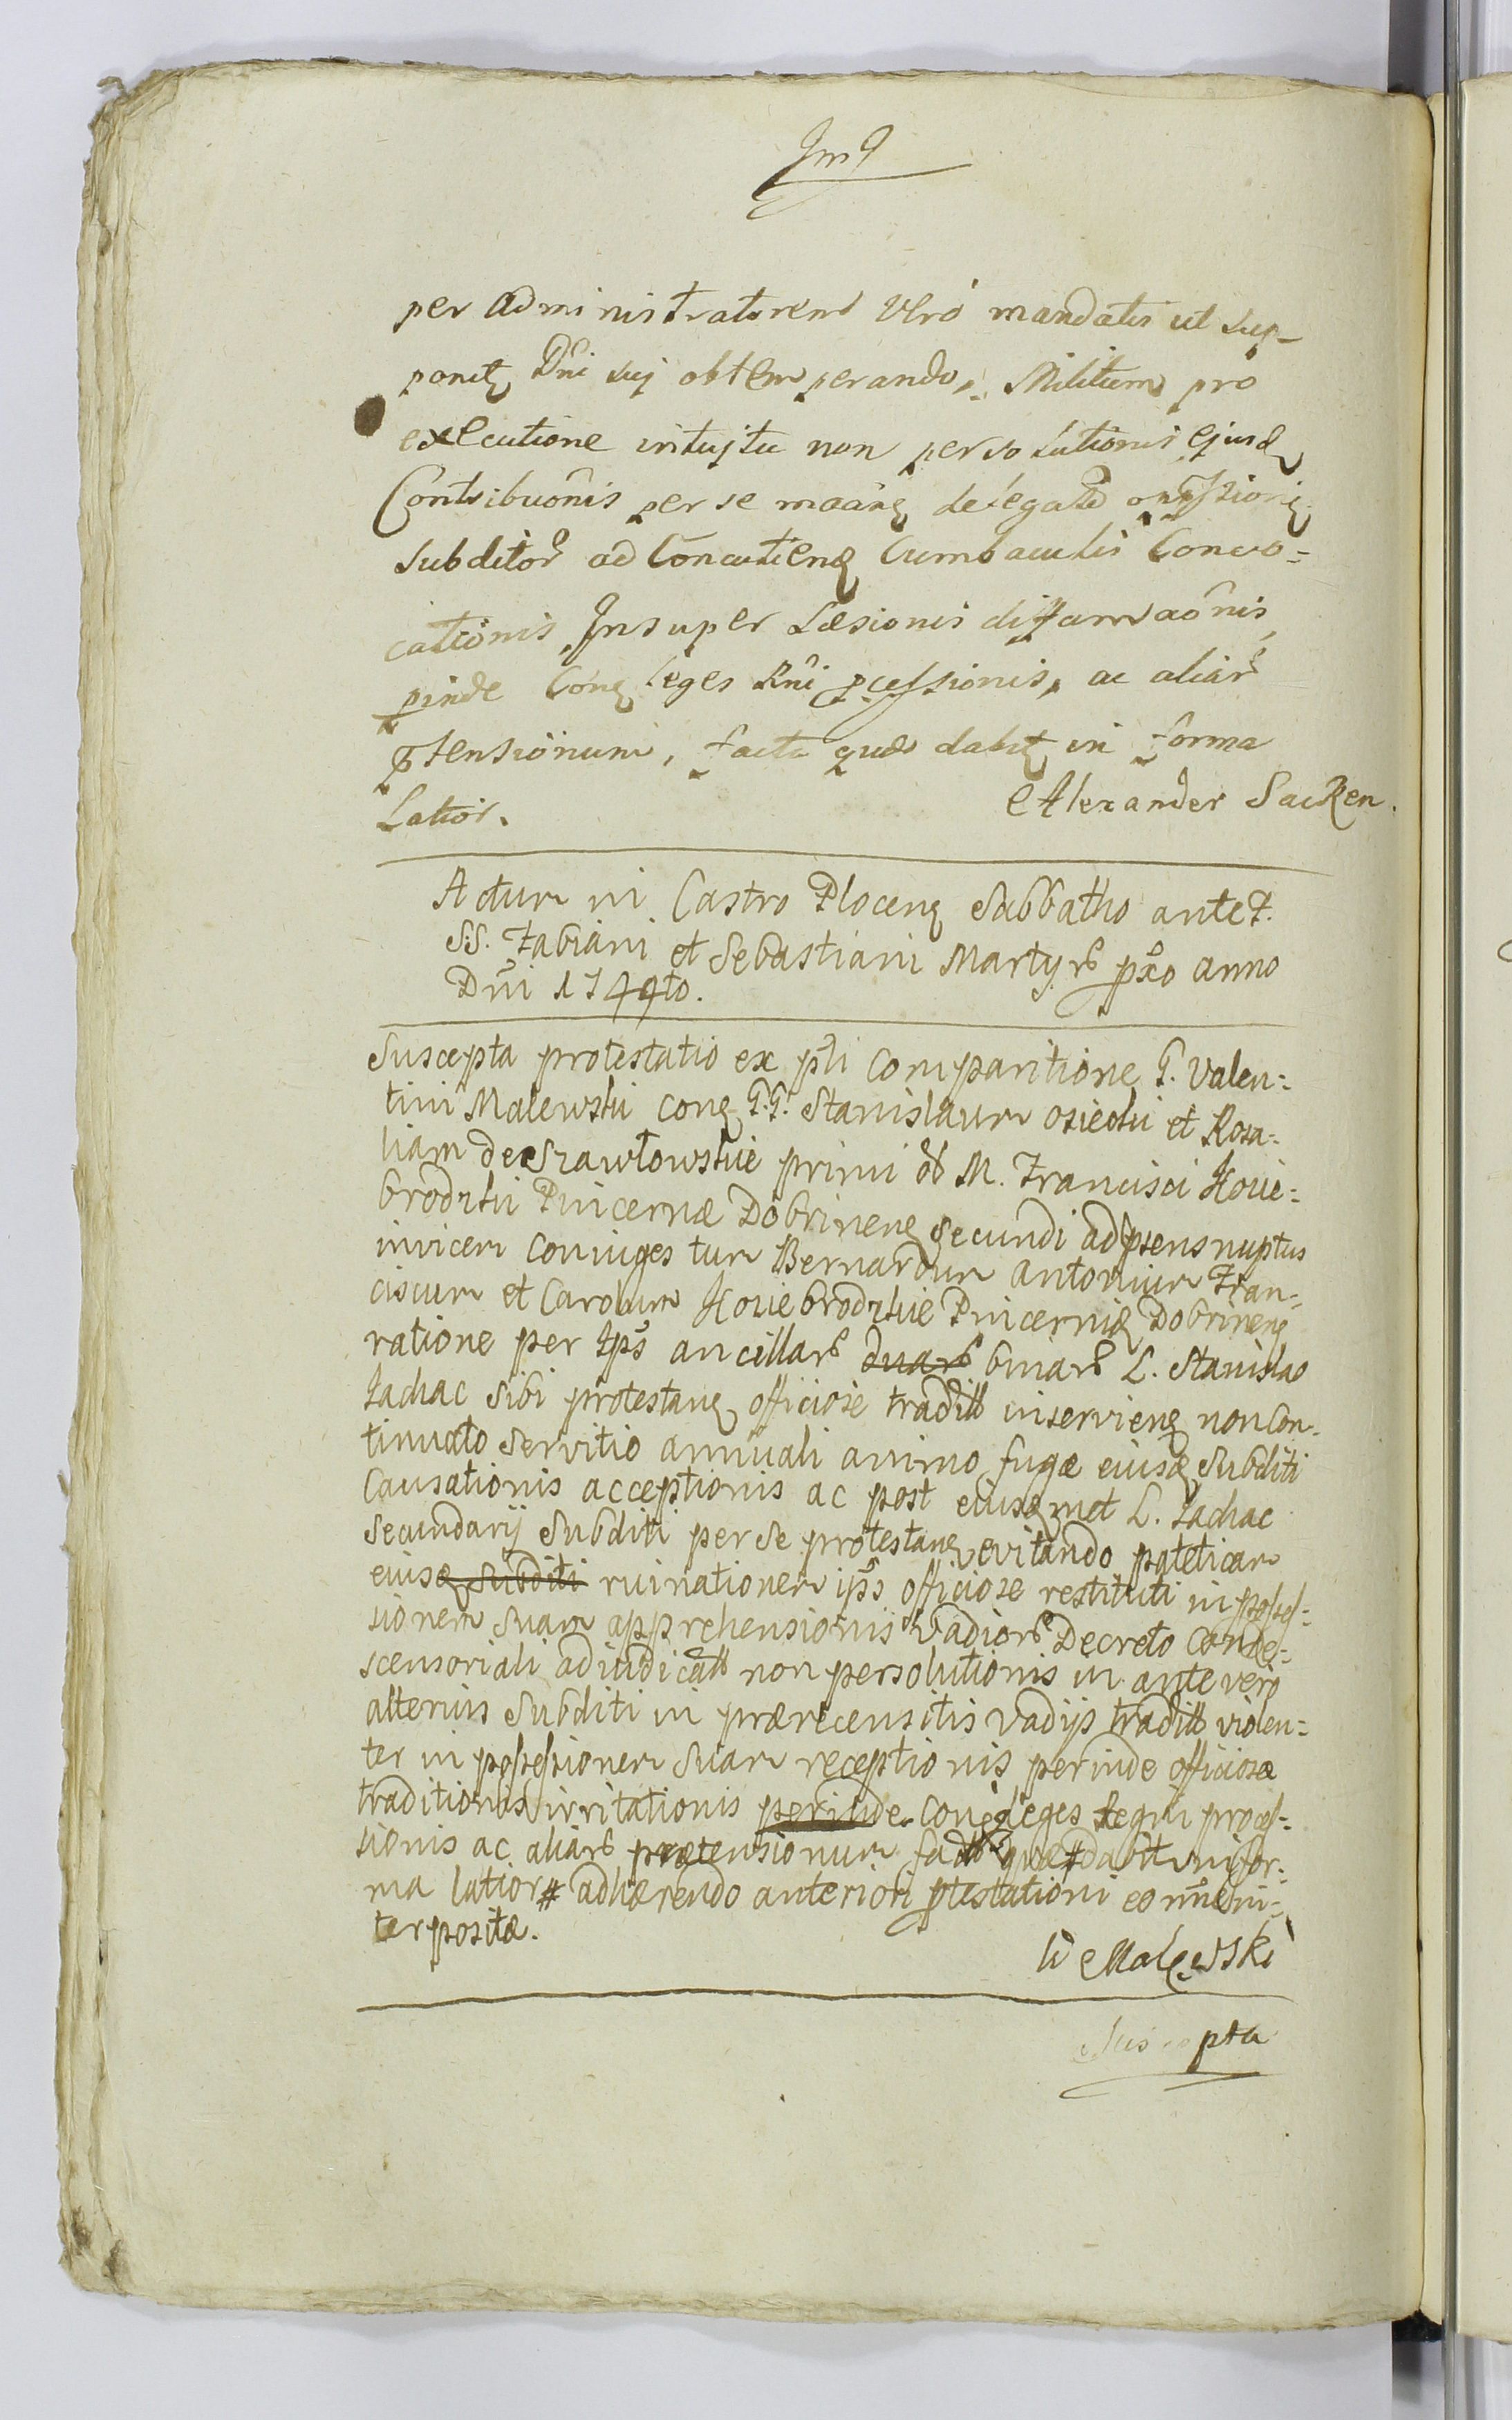 per administratorem Vero mandatis ut sup-
ponitz Dni suj obtemperando, Militum pro
executione intujtu non persolutionis ejusdz
Contribuonis per se maanz delegatt onissioniz
subditor ad Concutienz Cumbaculis Convo=
cationis Insuper Læsionis diffamaonis
pinde Conz leges Rni pcessionis, ac aliar
ptensionum, facta quæ dabitz in forma
Latiori.
Alexander Sacken.
Actum in Castro Plocenz Sabbatho ante F.
S.S. Fabiani et Sebastiani Martyrb pxo anno
Dni 1749to.
Suscepta protestatio ex pti comparitione G. Valen=
tini Malewski conz G.G. Stanislaum osiecki et Rosa=
liam de Szawłowskie primi M. Francisci Kowie=
brodzki Pincernæ Dobrinenz secundi ad psens nuptus
invicem coniuges tum Bernardum Antonium Fran=
ciscum et Carolum Kowiebrodzkie Pincernidz Dobrinenz
ratione per Ips ancillarb duarb binarb L. Stanislao
Jachac sibi protestanz officiose traditt inservienz non Con=
tinuato servitio annuali animo fugæ eiusdz subditi
Causationis acceptionis ac post eiusdzmet L. Jachac
secundarij subditi per se protestanz evitando poteticam
eiusdz subditi ruinationem ips officiose restituti in posses=
sionem suam apprehensionis Vadiorb Decreto Conde=
scensoriali adiudicatt non persolutionis in ante vero
alterius subditi in prærecensitis Vadijs traditt violen=
ter in possessionem suam receptionis perinde officiosæ
traditionis irritationis perinde conz leges Regni proces=
sionis ac aliarb prætensionum facta quæ # dabit in for=
ma latiori # adhærendo anteriori ptestationi eo nne in=
terpositæ.
W Malewski
Suscepta